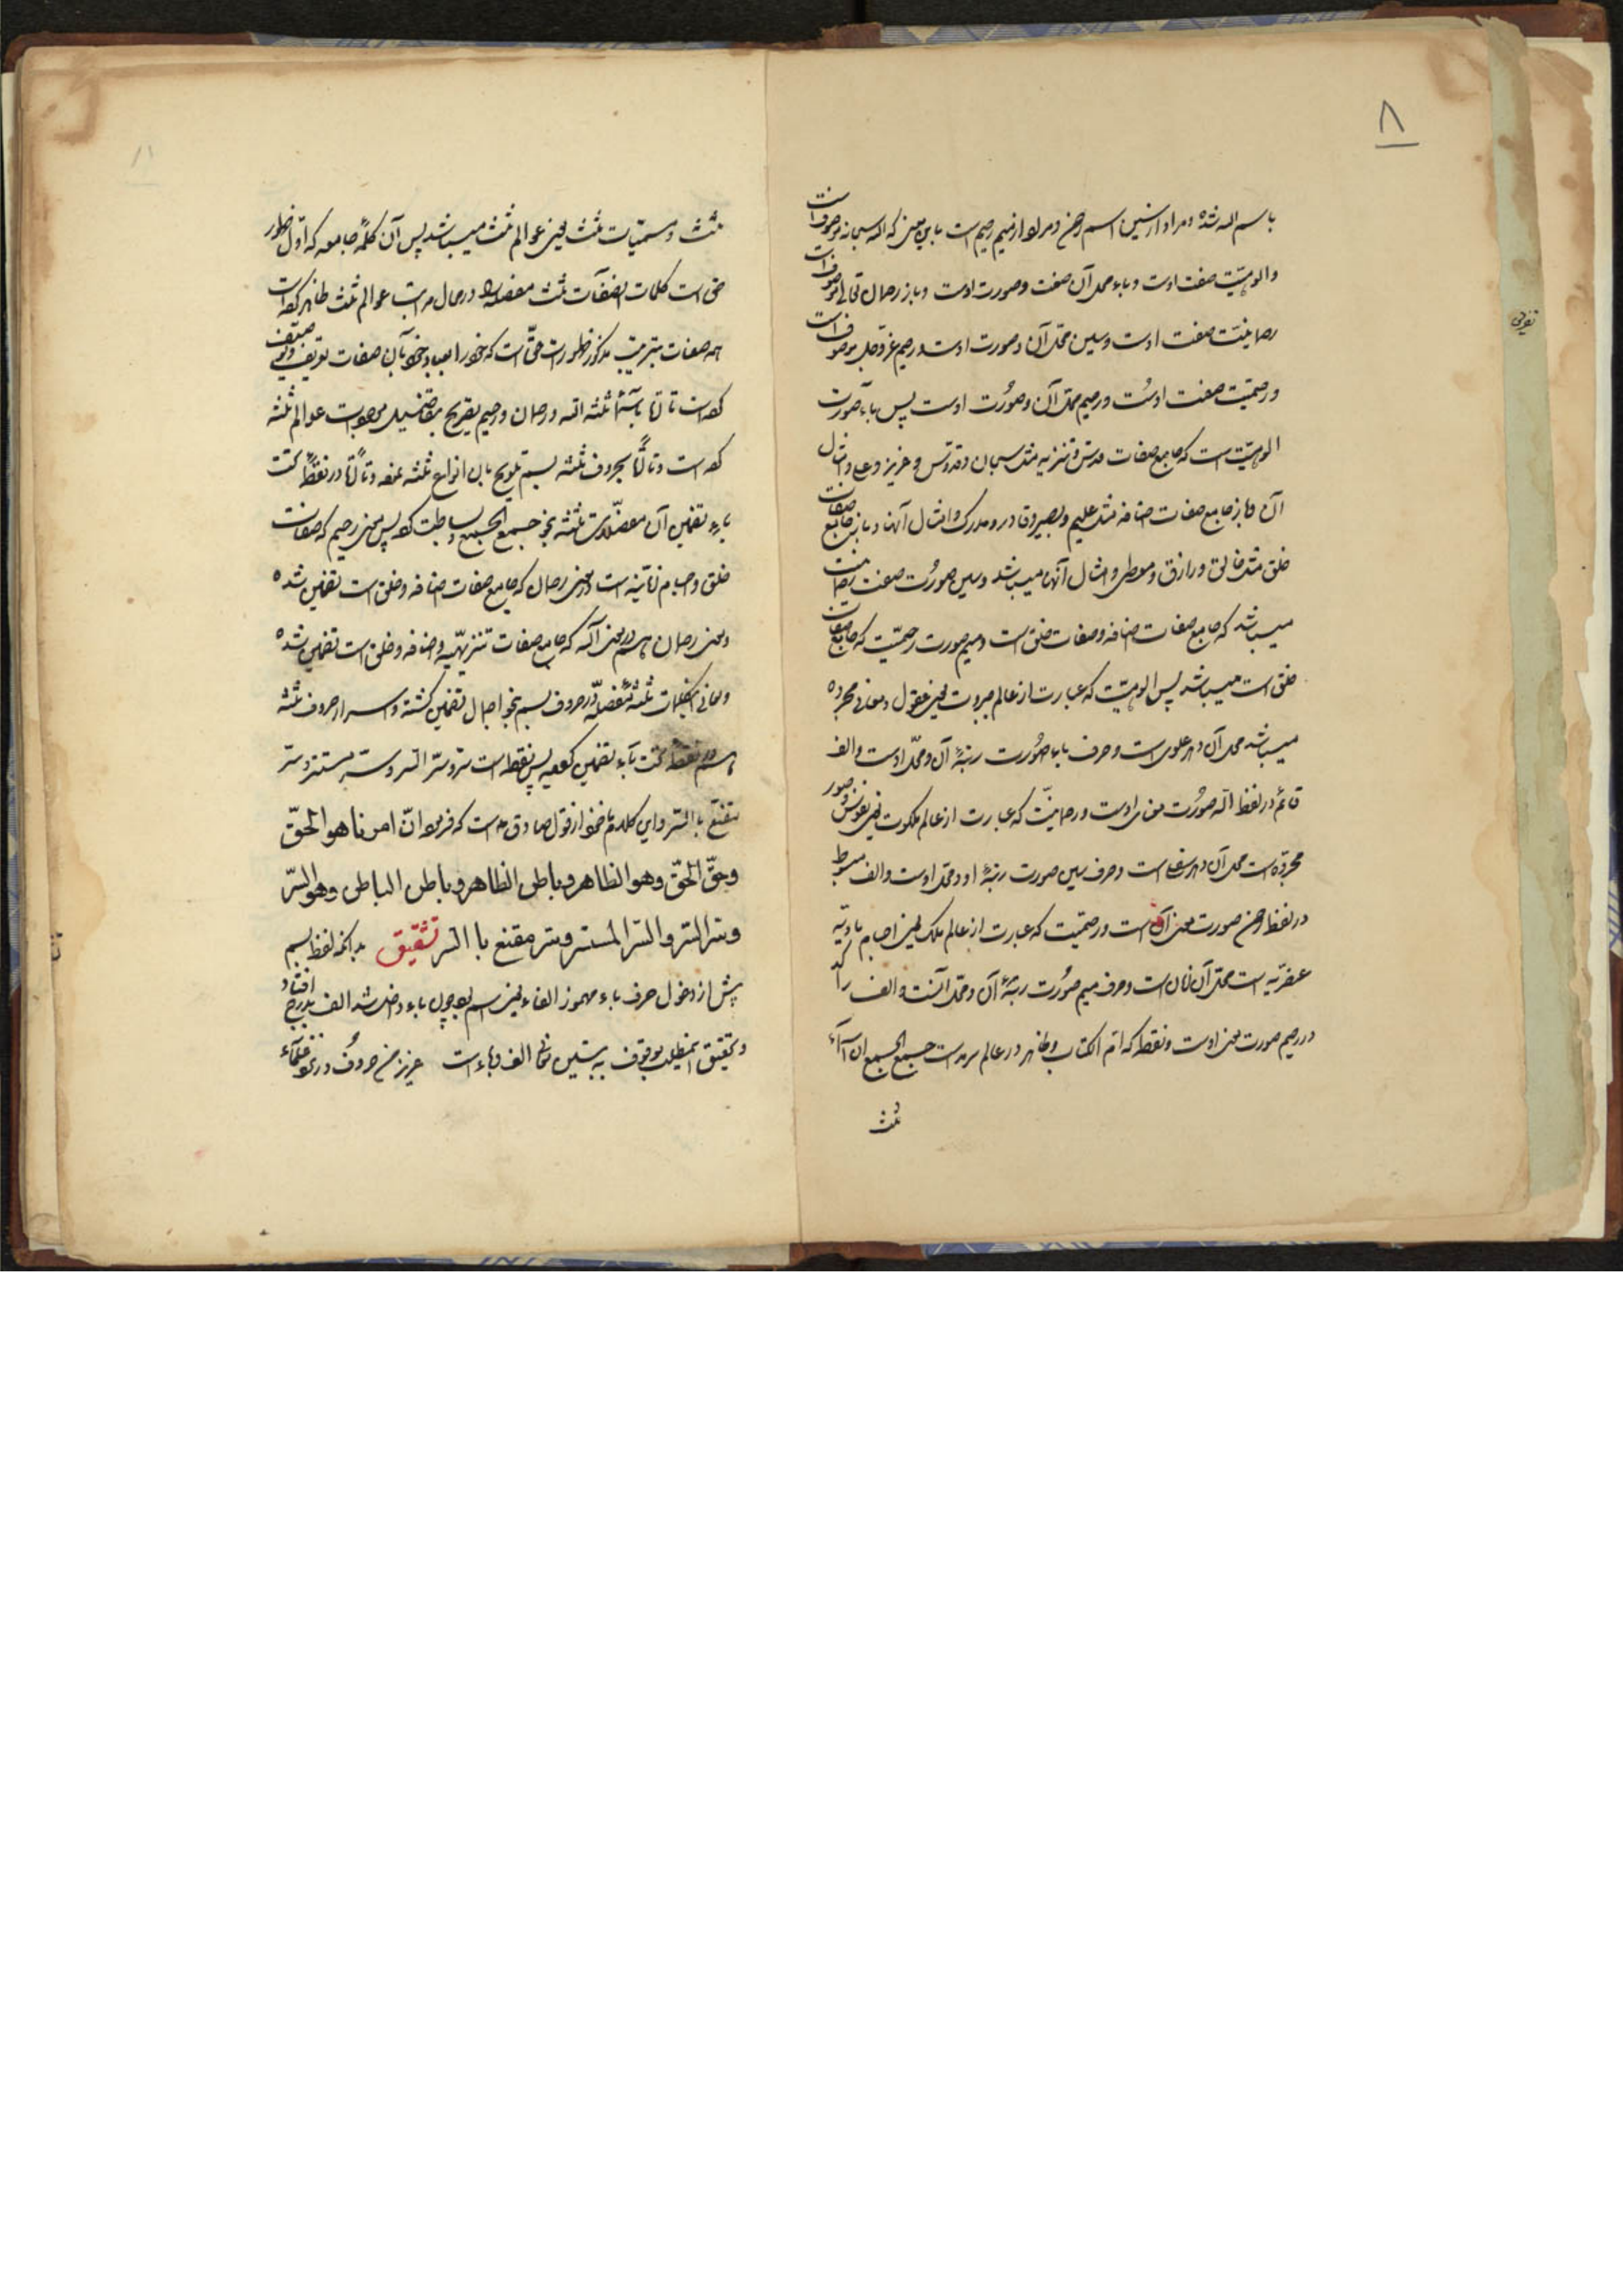 ۸
باسم الله شده و مراد از سین اسم رحمن و مراد از میم رحیم است باین معنی که الله سبحانه موصوف است
والوهیّت صفت اوست و باء محل آن صفت وصورت اوست و باز رحمان تعالی موصوف است
رحمانیّت صفت اوست و سین محلّ آن وصورت اوست و رحیم عزّوجلّ موصوف است
ورحیمیّت صفت اوست و رحیم محلّ آن وصورت اوست پس باء صورت
الوهیّت است که جامع صفات قدس وتنزیه مثل سبحان وقدّوس و عزیز وعلی وامثال
آن و باز جامع صفات اضافه مثل علیم وبصیر وقادر ومدرک وامثال آنها و باز جامع صفات
خلق مثل خالق ورازق ومعطی وامثال آنها میباشد وسین صورت صفت رحمانیّت
میباشد که جامع صفات اضافه وصفات خلق است ومیم صورت رحیمیّت که جامع صفات
خلق است میباشد پس الوهیّت که عبارت از عالم جبروت یعنی عقول ومعانی مجرده
میباشد محل آن دهر علوی است وحرف باء صورت رتبهٔ آن ومحلّ اوست والف
قائم در لفظ الله صورت معنی اوست ورحمانیّت که عبارت از عالم ملکوت یعنی نفوس وصور
مجرّده است محل آن دهر سفلی است وحرف سین صورت رتبهٔ او ومحلّ اوست والف مبسوط
در لفظ رحمن صورت معنی آن است ورحیمیّت که عبارت از عالم ملک یعنی اجسام مادیّه
عنصریّه است محلّ آن زمان است وحرف میم صورت رتبهٔ آن ومحلّ آنست والف راکد
در رحیم صورت معنی اوست ونقطه که امّ الکتاب وظاهر در عالم سرمد است جمیع الجمیع
ثلث
ثلث ومسمّیات ثلث یعنی عوالم ثلث میباشد پس آن کلمهٔ جامعه که اوّل ظهور
حق است کلمات ثلث مفصله در محال مراتب عوالم ثلث ظاهر
همه صفات بترتیب مذکور ظهورات حقّ است که خود را بعباد خود بآن صفات تعریف وتوصیف
ثلثه الله ورحمان ورحیم بتصریح بتفصیل عوالم ثلثه
است بحروف ثلثه بسم تلویح بان انواع ثلثه در نقطهٔ تحت
باء تضمین آن مفصّلات ثلثه بنحو جمیع الجمیع وبساطت پس معنی رحیم که صفات
خلق واجسام زمانیّه است در معنی رحمان که جامع صفات اضافه وخلق است تضمین شده
ومعنی رحمان در معنی الله که جامع صفات تنزیهیّه واضافه وخلق است تضمین شده
ومعانی کلمات ثلثهٔ مفصله در حروف بسم بنحو اجمال تضمین گشته واسرار حروف ثلثه
بسم در نقطه تحت باء تضمین پس نقطه است سرّ وسرّ السر وسر مستتر وسر
مقنّع بالسّر واین کلام ماخوذ از قول صادق است که فرمود انّ امرنا هو الحقّ
وحقّ الحقّ وهو الظاهر وباطن الظاهر وباطن الباطن وهو السّر
وسر السّر والسّر المستسر وسر مقنع با السر تشقیق بدانکه لفظ بسم
پیش از دخول حرف باء مهموز الفاء یعنی اسم بود چون باء داخل شد الف بدرج افتاد
وتحقیق این مطلب موقوف به تبیین معانی الف وباء است عزیز من حروف در نزد علماء